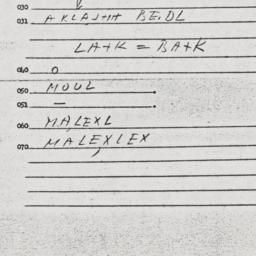 030
031 AKLAJ+H BE.DL
LA+K = BA+K
040 O
050 MOUL
051 —
060 MALEXL
070 MALEXLEX